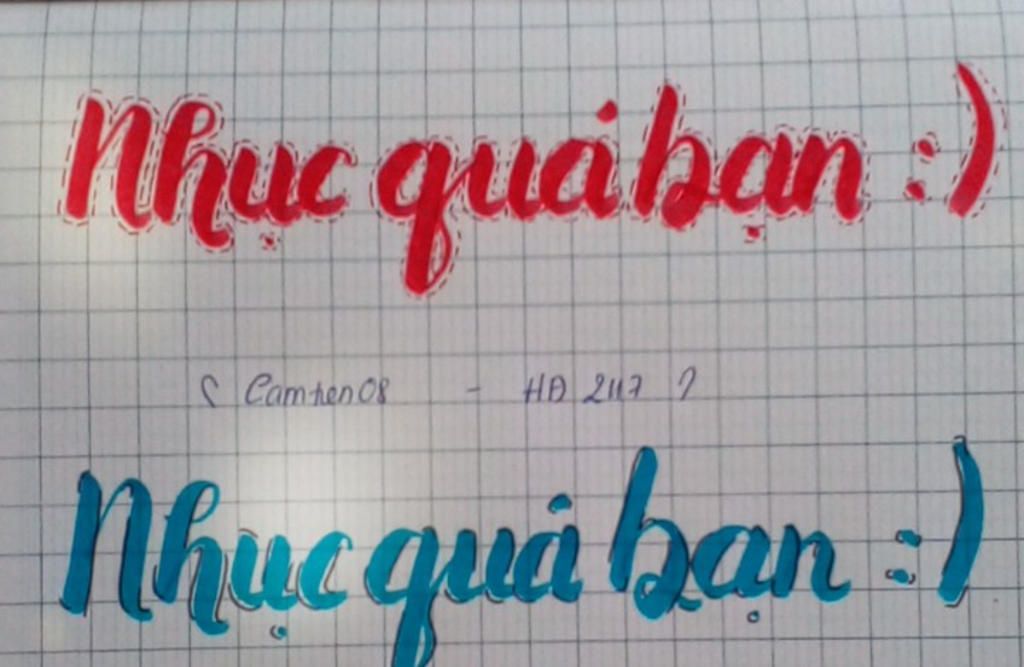 Nhục quá bạn :)
Camtien08 - HD 2117
Nhục quá bạn :)